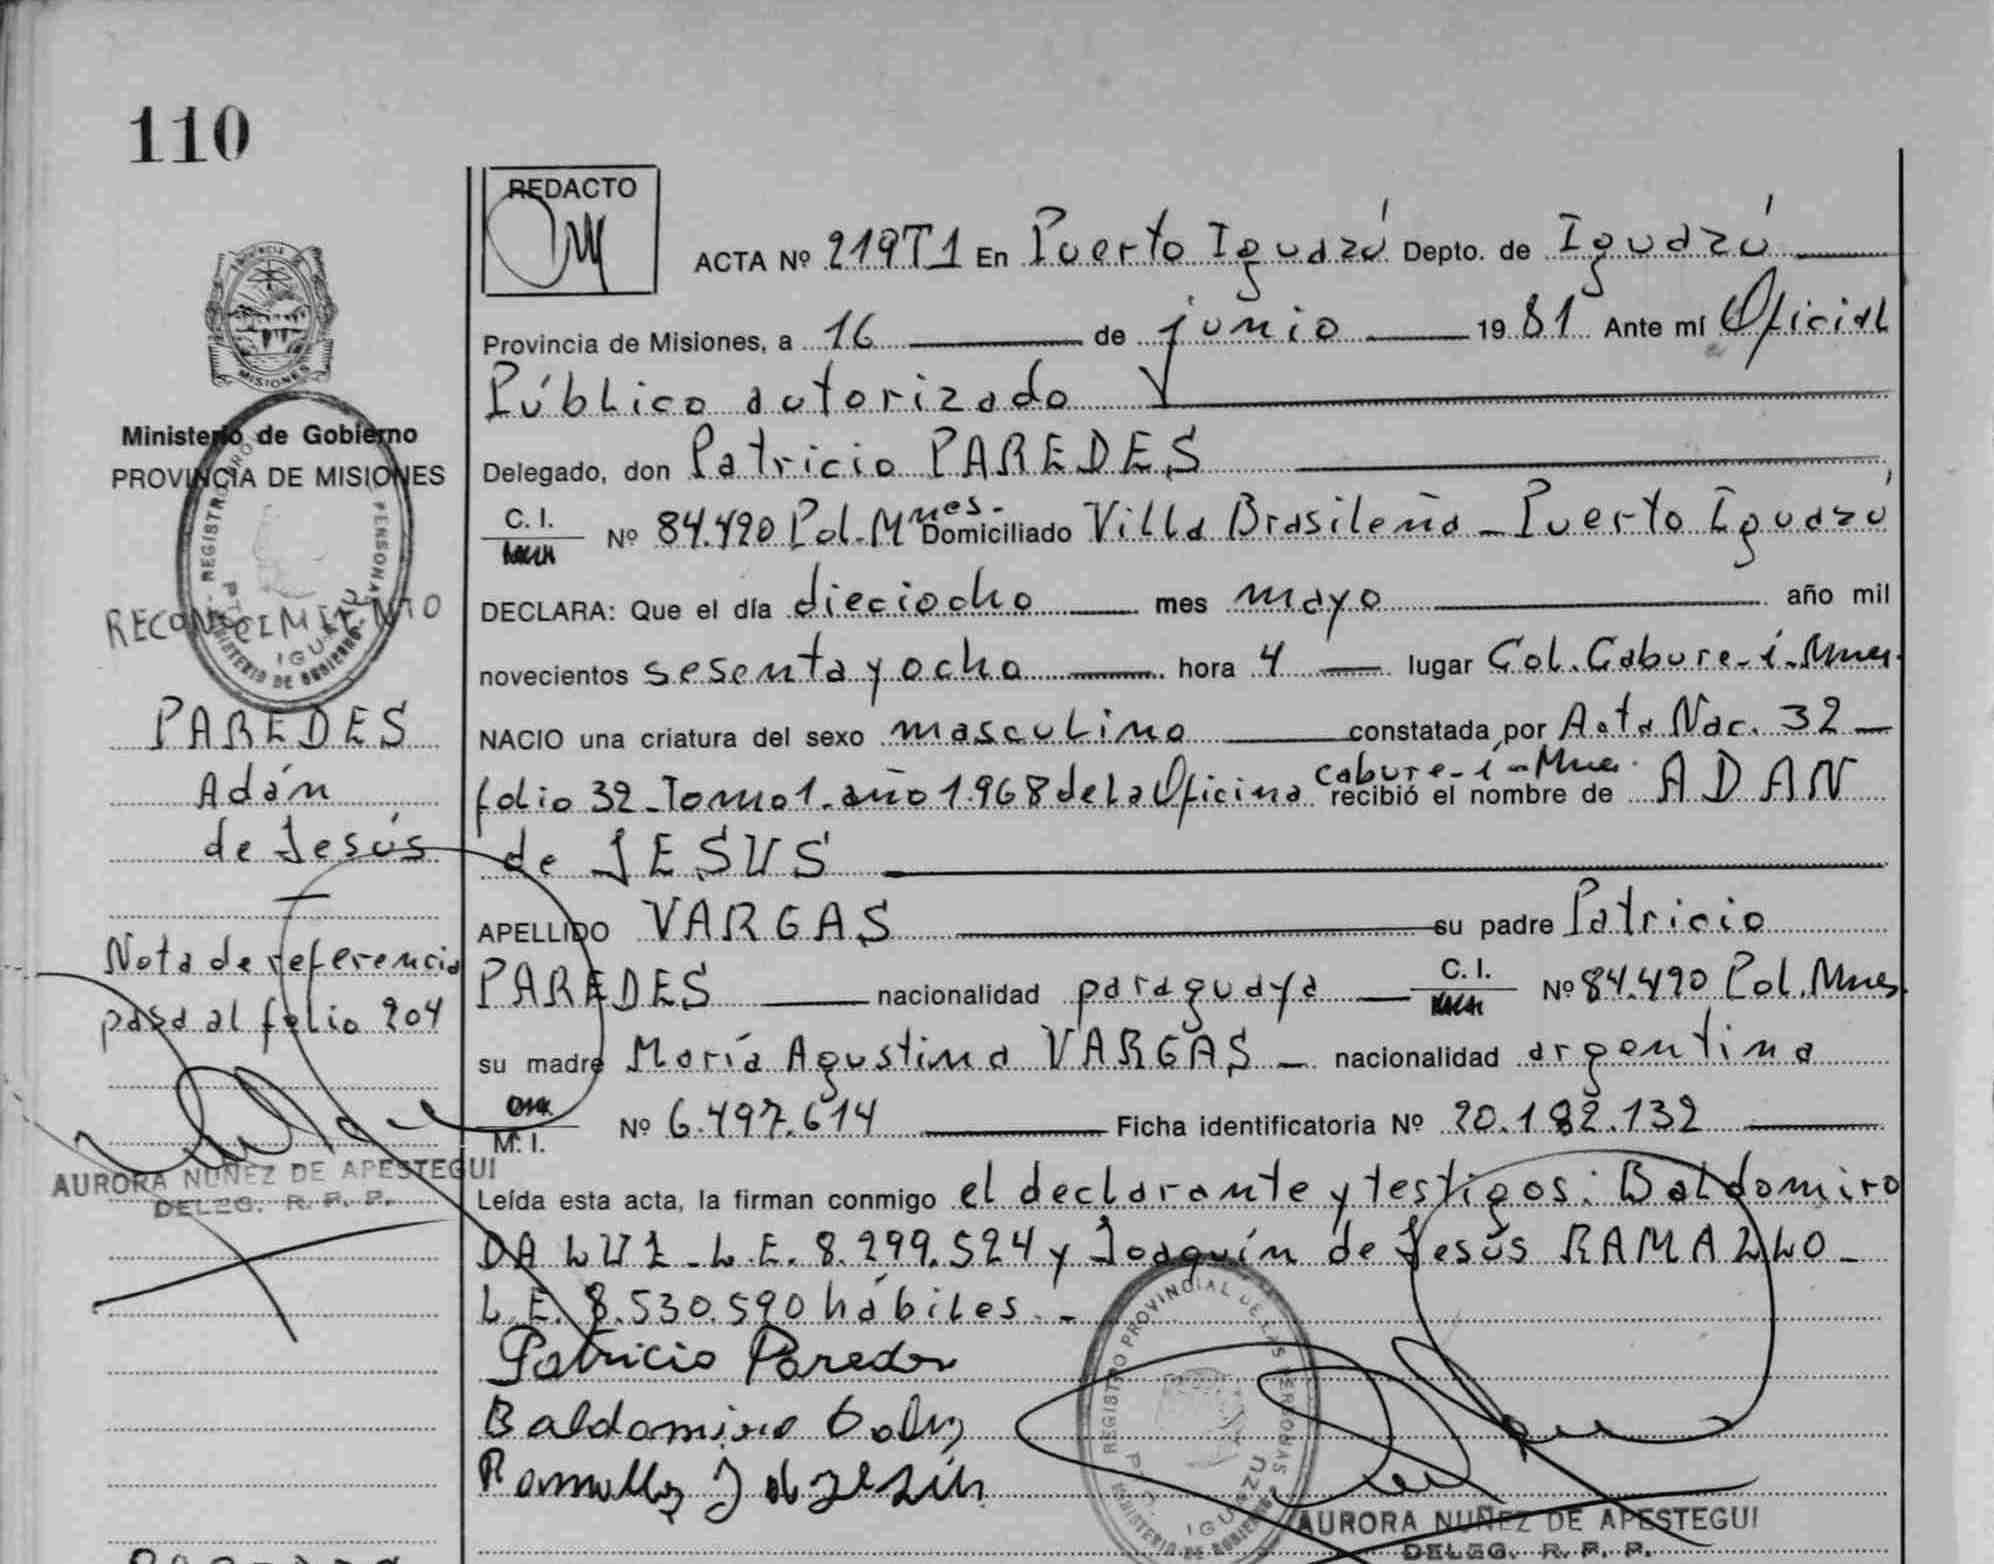 110
REDACTO
ACTA Nº 219T1 En Puerto Iguazú Depto. de Iguazú
Provincia de Misiones, a 16 de junio 1981 Ante mí Oficial
Público autorizado
Delegado, don Patricio PAREDES
C. I. Nº 84.490 Pol. Mnes. Domiciliado Villa Brasileña - Puerto Iguazú
DECLARA: Que el día dieciocho mes mayo año mil
novecientos sesenta y ocho hora 4 lugar Col. Cabure-í-Mnes.
NACIO una criatura del sexo masculino constatada por Acta Nac. 32
folio 32 - Tomo 1 - año 1.968 de la Oficina Cabure-í-Mnes. recibió el nombre de ADAN
de JESUS
APELLIDO VARGAS su padre Patricio
PAREDES nacionalidad paraguaya C. I. Nº 84.490 Pol. Mnes.
su madre María Agustina VARGAS - nacionalidad argentina
M. I. Nº 6.497.614 Ficha identificatoria Nº 20.182.132
Leída esta acta, la firman conmigo el declarante y testigos: Baldomiro
DA LUZ - L.E. 8.299.524 y Joaquín de Jesús RAMALLO -
L.E. 8.530.590 hábiles. -
Patricio Paredes
Baldomiro
AURORA NUÑEZ DE APESTEGUI
DELEG. R. P. P.
REGISTRO PROVINCIAL DE LAS PERSONAS
IGUAZU
MINISTERIO DE GOBIERNO
PROVINCIA
MISIONES
Ministerio de Gobierno
PROVINCIA DE MISIONES
RECONOCIMIENTO
PAREDES
Adán
de Jesús
Nota de referencia
pasa al folio 204
AURORA NUÑEZ DE APESTEGUI
DELEG. R. P. P.